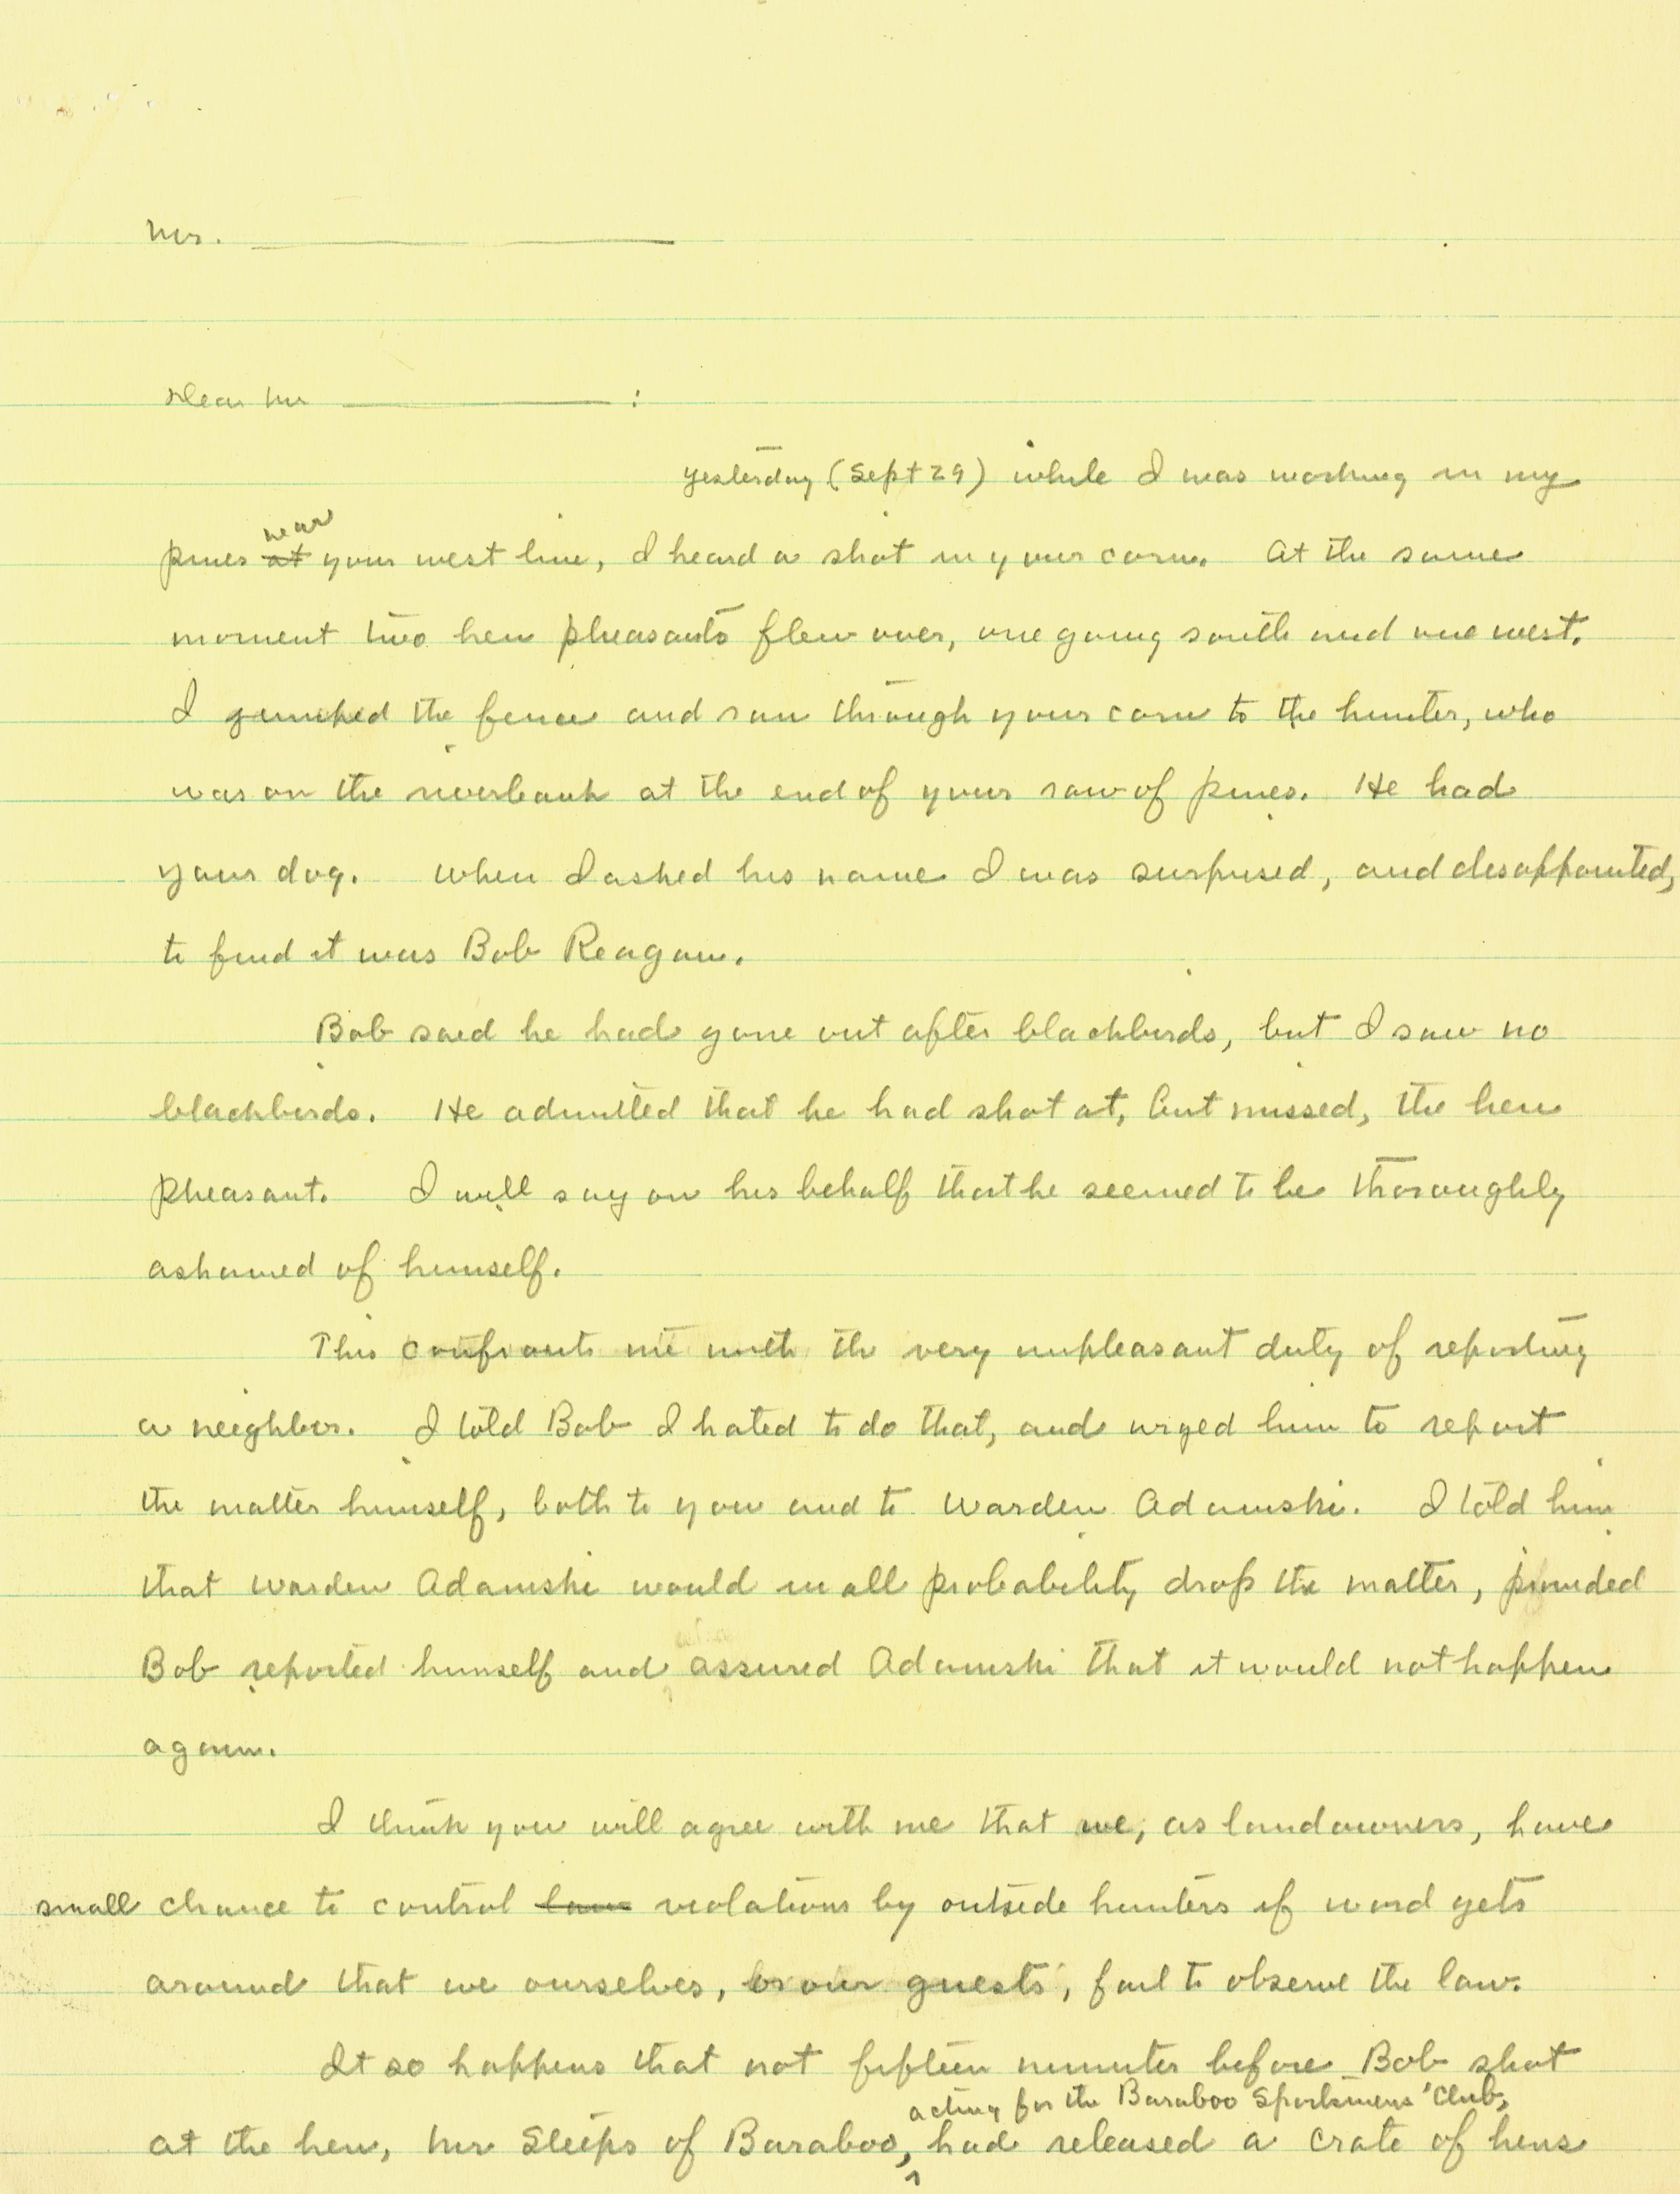 Mr.
Dear Mr :
Yesterday (Sept 29) while I was working in my
near
pines at your west line, I heard a shot in your corn. At the same
moment two hen pheasants flew over, one going south and one west.
I jumped the fence and ran through your corn to the hunter, who
was on the riverbank at the end of your row of pines. He had
your dog. When I asked his name I was surprised, and disappointed,
to find it was Bob Reagan.
Bob said he had gone out after blackbirds, but I saw no
blackbirds. He admitted that he had shot at, but missed, the hen
pheasant. I will say on his behalf that he seemed to be thoroughly
ashamed of himself.
This confronts me with the very unpleasant duty of reporting
a neighbor. I told Bob I hated to do that, and urged him to report
the matter himself, both to you and to Warden Adamski. I told him
that Warden Adamski would in all probability drop the matter, provided
Bob reported himself and assured Adamski that it would not happen
again.
I think you will agree with me that we, as landowners, have
small chance to control law violations by outside hunters if word gets
around that we ourselves, or our guests, fail to observe the law.
It so happens that not fifteen minutes before Bob shot
acting for the Baraboo Sportsmens' Club,
at the hen, Mr Sleips of Baraboo, had released a crate of hens